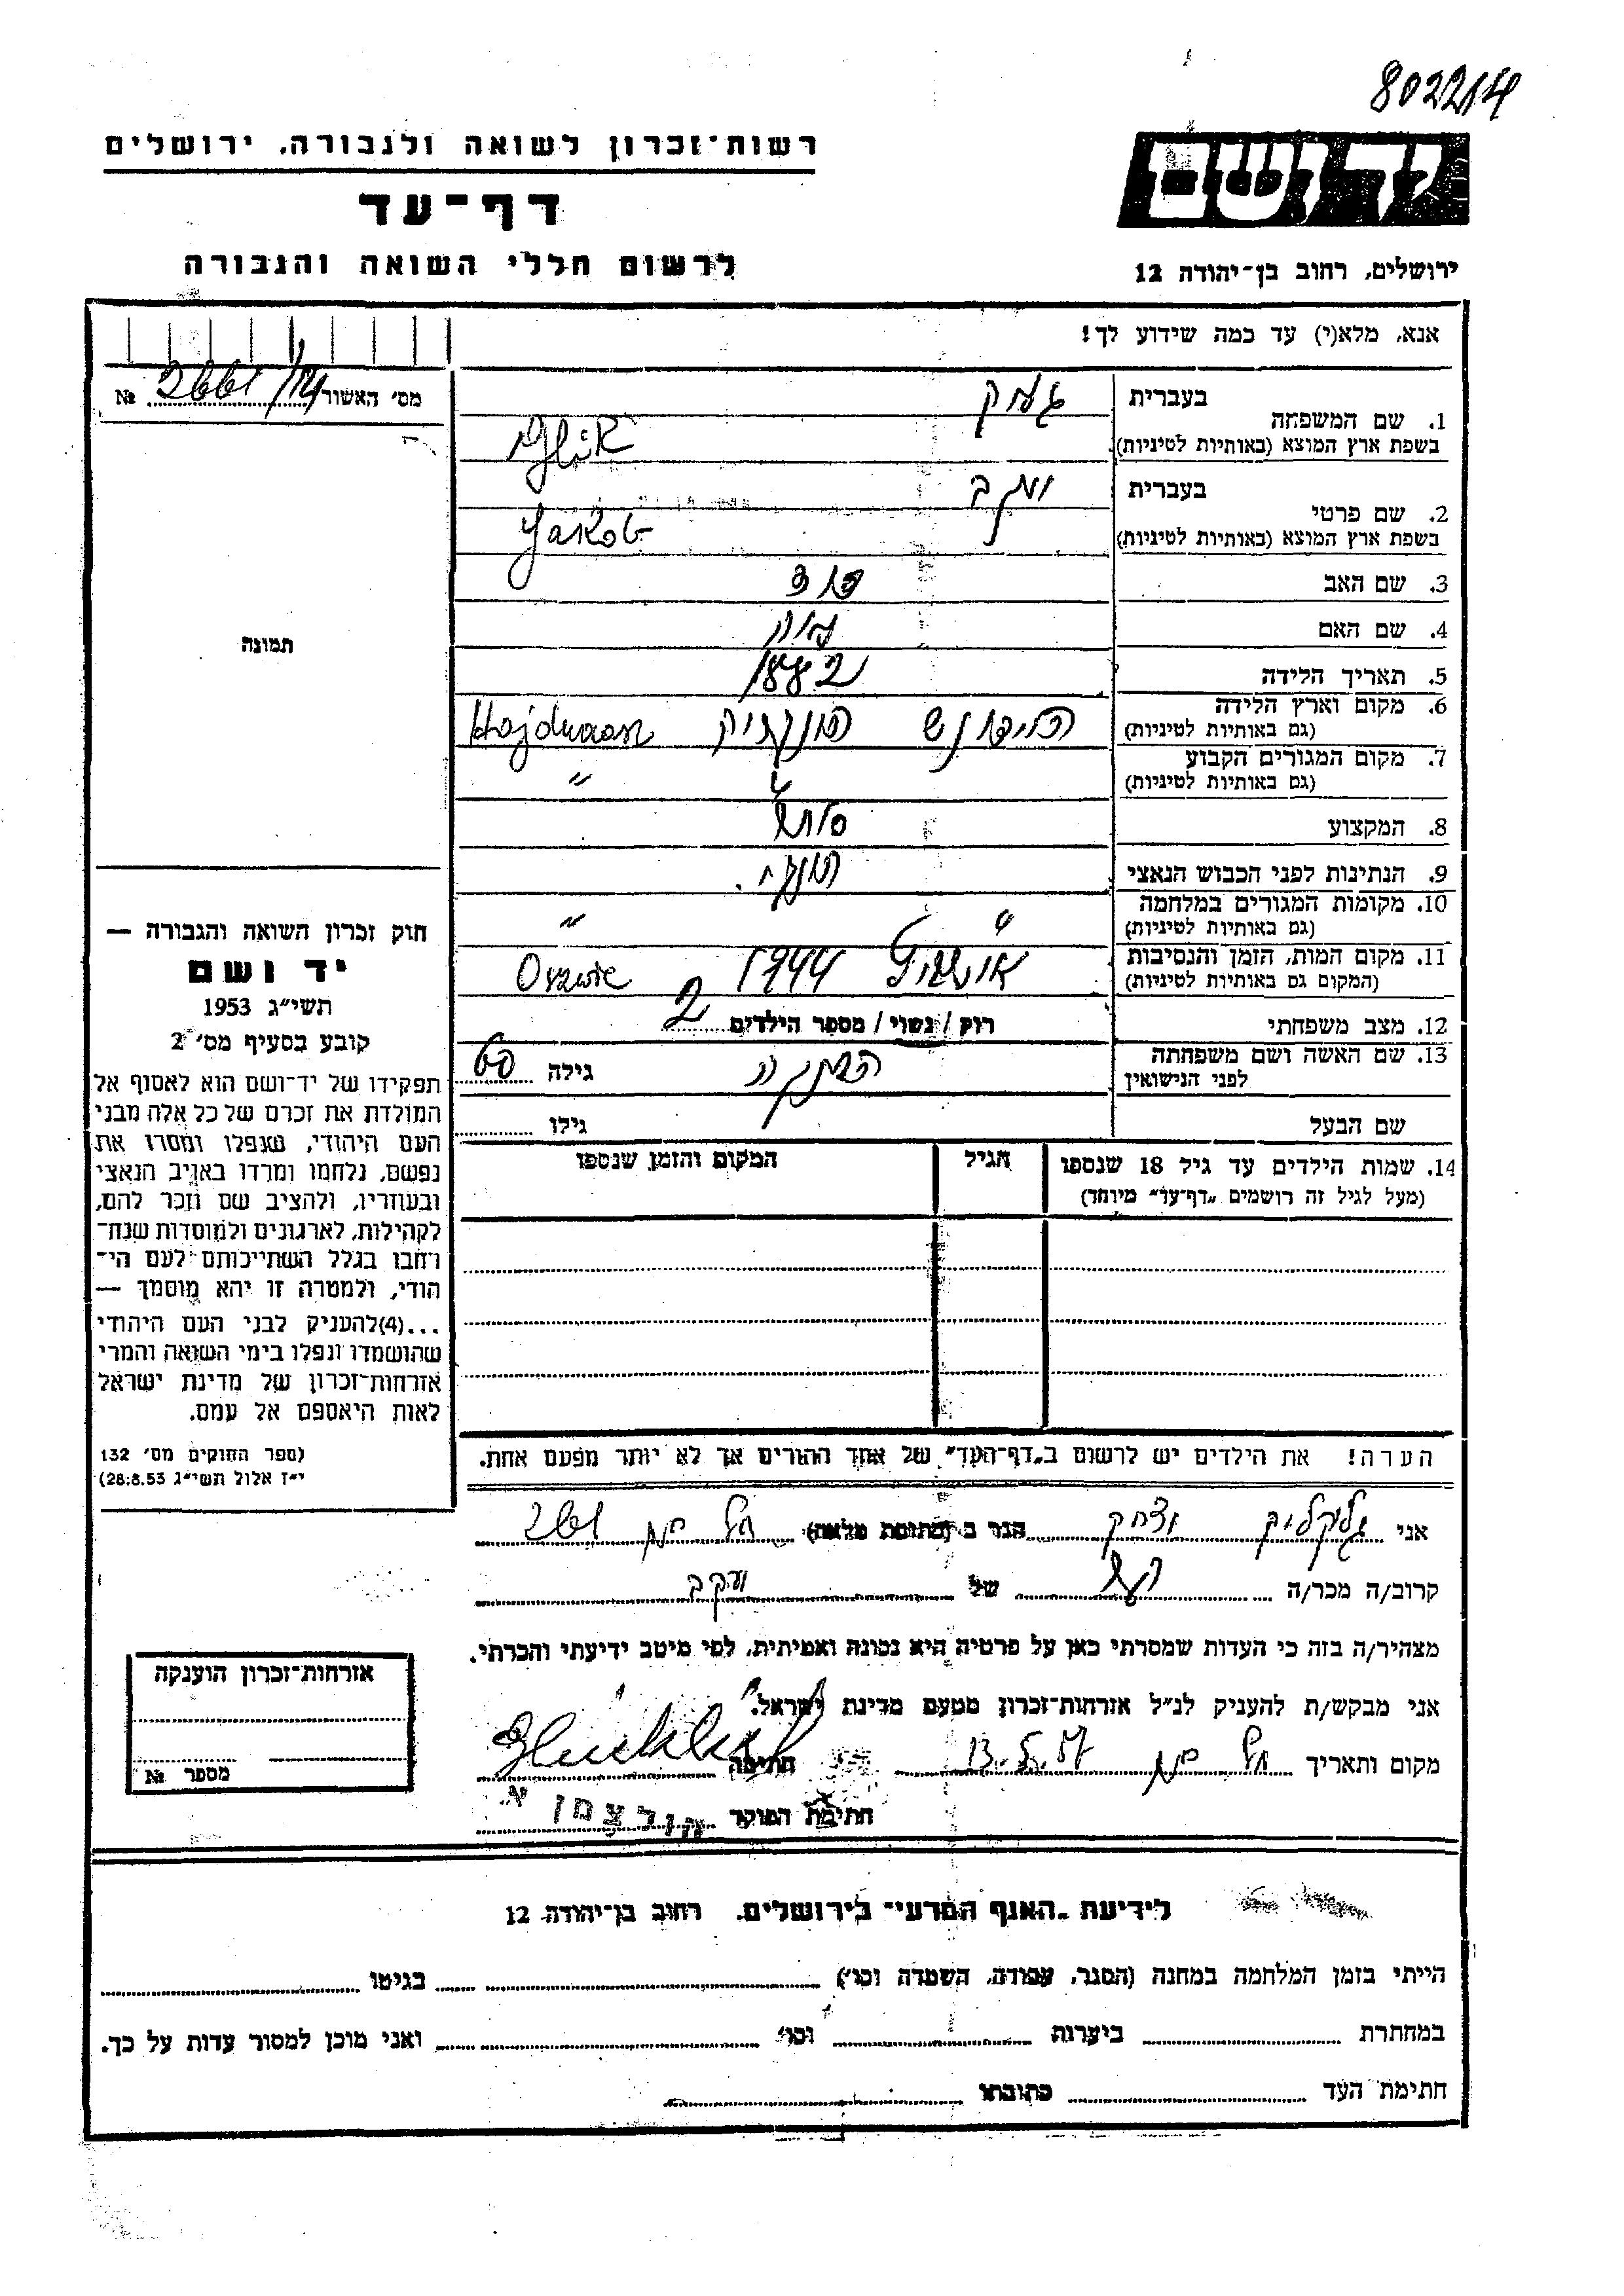 802214
רשות־זכרון לשואה ולגבורה. ירושלים
דף־עד
לרשום חללי השואה והגבורה
יד ושם
ירושלים, רחוב בן־יהודה 12
אנא, מלא(י) עד כמה שידוע לך!
מס׳ האשור № 2661/14
1. שם המשפחה
בעברית גליק
בשפת ארץ המוצא (באותיות לטיניות) Glük
2. שם פרטי
בעברית יעקב
בשפת ארץ המוצא (באותיות לטיניות) Jakob
3. שם האב
4. שם האם
5. תאריך הלידה 1882
6. מקום וארץ הלידה
(גם באותיות לטיניות)
7. מקום המגורים הקבוע
(גם באותיות לטיניות) " "
8. המקצוע סוחר
9. הנתינות לפני הכבוש הנאצי הונגרי.
10. מקומות המגורים במלחמה
(גם באותיות לטיניות) " "
11. מקום המות, הזמן והנסיבות
(המקום גם באותיות לטיניות) 1944
12. מצב משפחתי רוק / נשוי / מספר הילדים 2
13. שם האשה ושם משפחתה
לפני הנישואין גילה 60
שם הבעל גילו
14. שמות הילדים עד גיל 18 שנספו
(מעל לגיל זה רושמים „דף־עד" מיוחד)
הגיל
המקום והזמן שנספו
תמונה
חוק זכרון השואה והגבורה —
יד ושם
תשי״ג 1953
קובע בסעיף מס׳ 2
תפקידו של יד־ושם הוא לאסוף אל
המולדת את זכרם של כל אלה מבני
העם היהודי, שנפלו ומסרו את
נפשם, נלחמו ומרדו באויב הנאצי
ובעוזריו, ולהציב שם וזכר להם,
לקהילות, לארגונים ולמוסדות שנח־
רחבו בגלל השתייכותם לעם הי־
הודי, ולמטרה זו יהא מוסמך —
...(4)להעניק לבני העם היהודי
שהושמדו ונפלו בימי השואה והמרי
אזרחות־זכרון של מדינת ישראל
לאות היאספם אל עמם.
(ספר החוקים מס׳ 132
י״ז אלול תשי״ג 28.8.53)
הערה! את הילדים יש לרשום ב„דף־העד" של אחד ההורים אך לא יותר מפעם אחת.
אני גליקליק יצחק הגר ב (כתובת מלאה)
קרוב/ה מכר/ה של יעקב
מצהיר/ה בזה כי העדות שמסרתי כאן על פרטיה היא נכונה ואמיתית, לפי מיטב ידיעתי והכרתי.
אני מבקש/ת להעניק לנ״ל אזרחות־זכרון מטעם מדינת ישראל.
מקום ותאריך 13.5.57 חתימה
חתימת הפוקד הולצמן א.
אזרחות־זכרון הוענקה
מספר №
לידיעת „האגף המדעי" בירושלים. רחוב בן־יהודה 12
הייתי בזמן המלחמה במחנה (הסגר, עבודה, השמדה וכו׳) בגיטו
במחתרת ביערות וכו׳ ואני מוכן למסור עדות על כך.
חתימת העד כתובתו